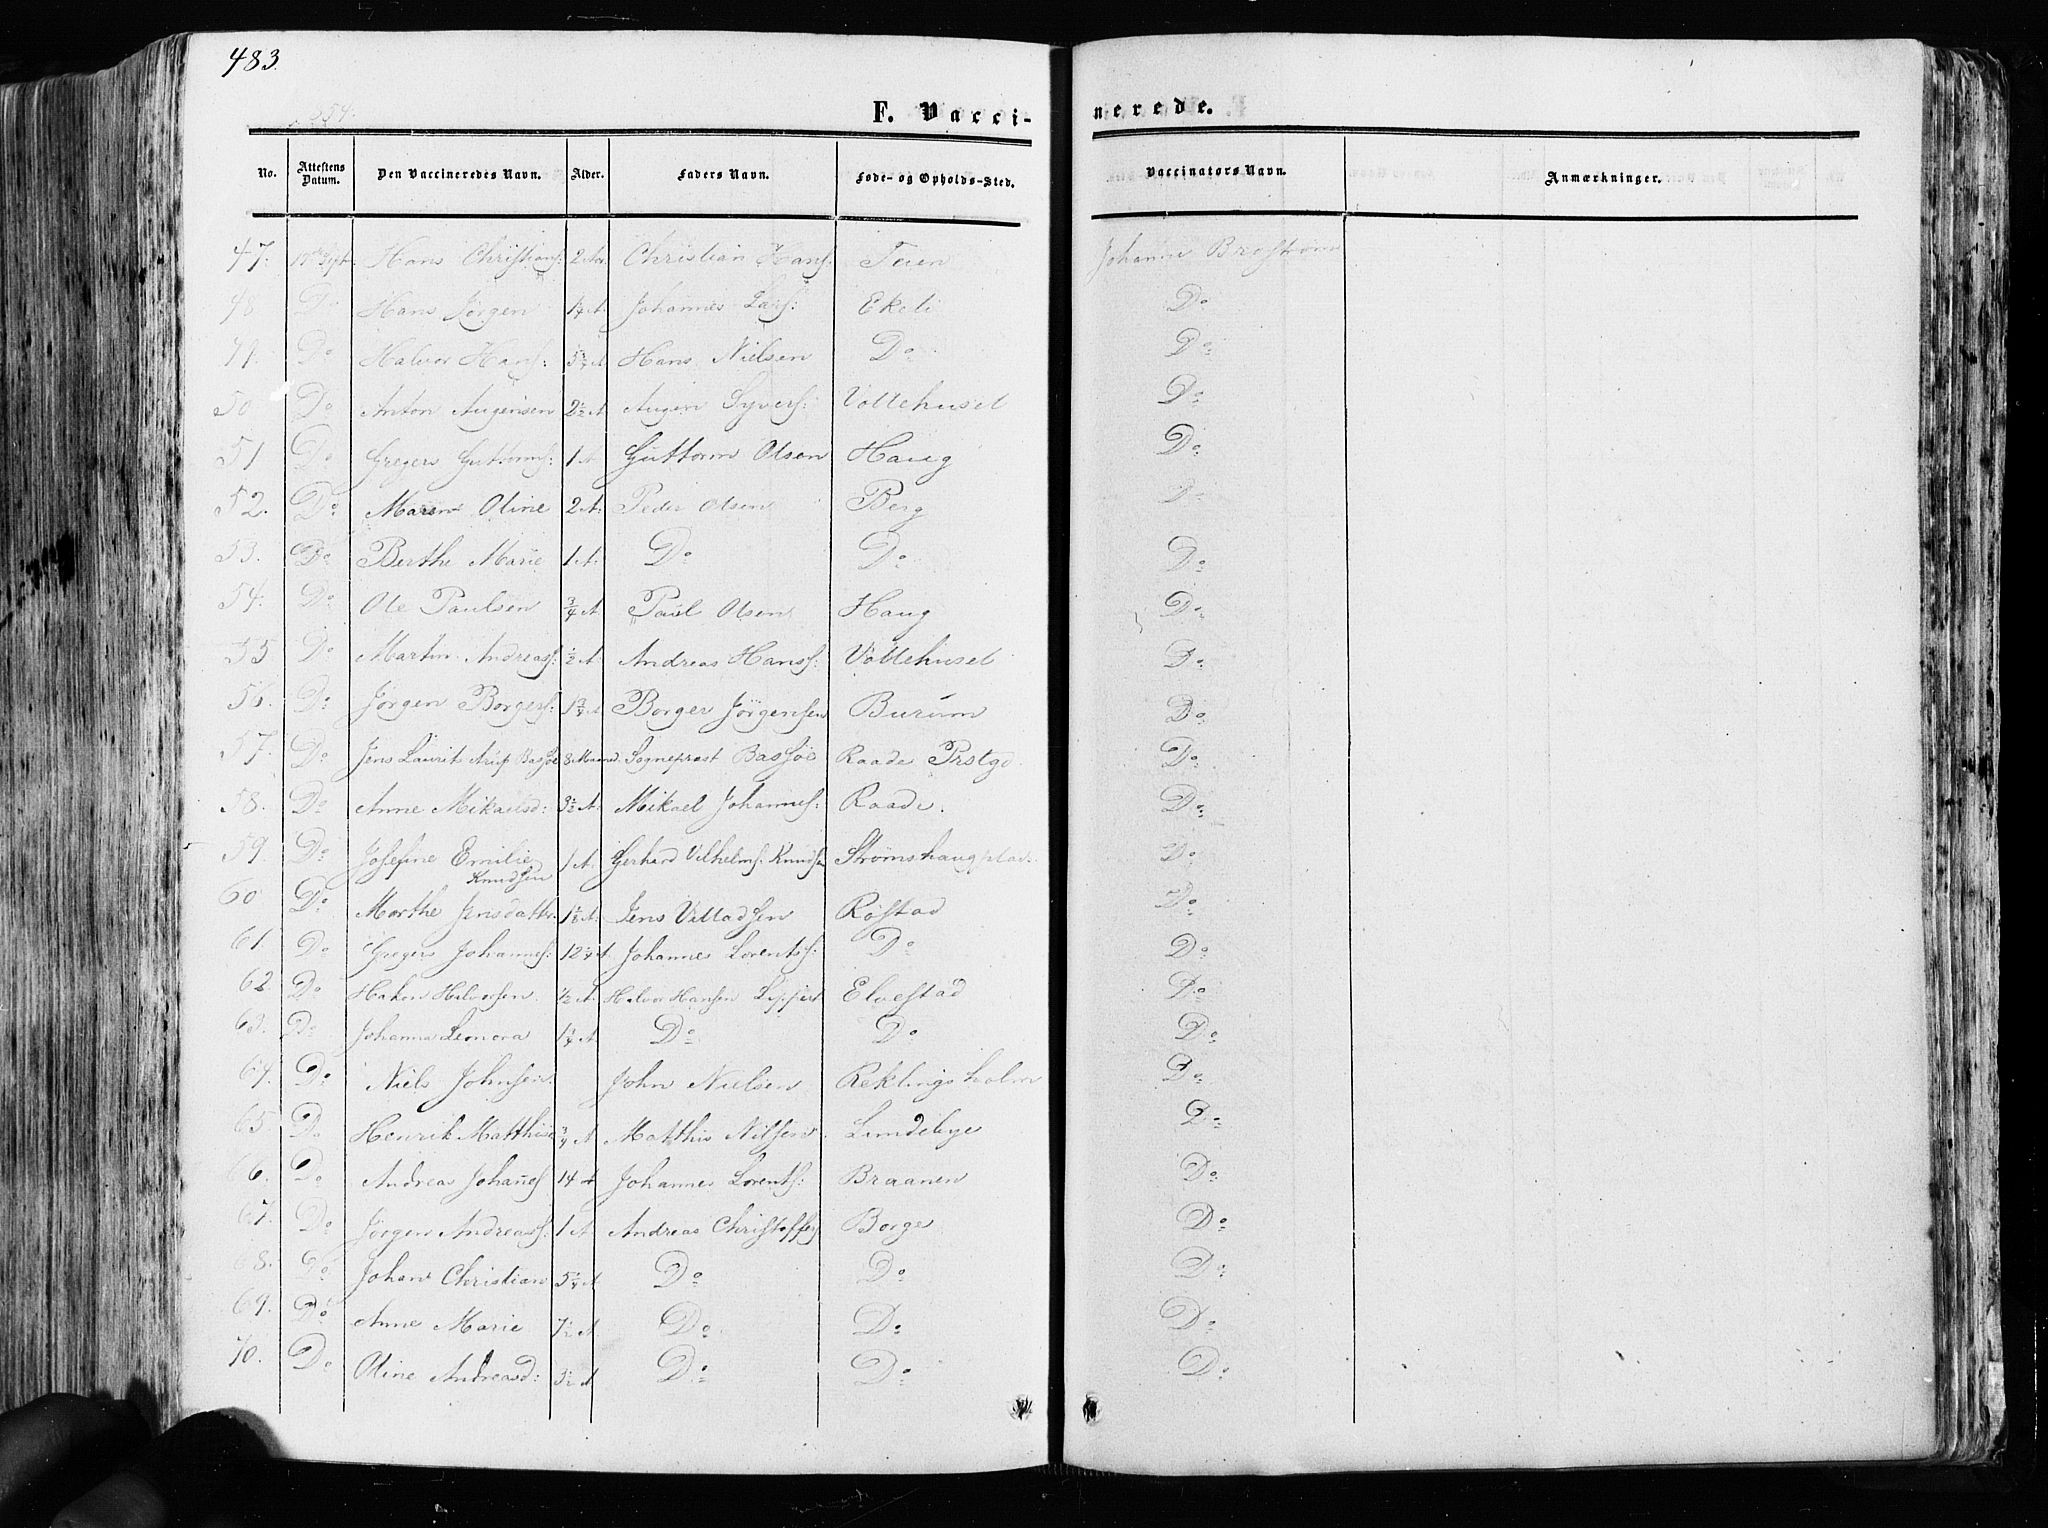 483.
354.
F. Vacci- nerede.
No. Attestens Datum. Den Vaccineredes Navn. Alder. Faders Navn. Føde- og Opholds-Sted. Vaccinators Navn. Anmærkninger.
47. Hans Christians: Christian Hans: Teien Johanne Brostrøm
48 Do Hans Jørgen 1¼ A. Johannes Lars: Ekeli Do
49. Do Halvor Hans: Hans Nielsen Do Do
50. Do Anton Augensen 2½ A Augen Syvers: Voltehuset Do
51 Do Gregers Guttorms: 1 A Guttorm Olsen Haug Do
52. Do Maren Oline 2 A: Peder Olsen Berg Do
53. Do Berthe Marie 1 A: Do Do Do
54. Do Ole Paulsen ¾ A Paul Olsen Haug Do
55. Do Martin Andreass: ½ A. Andreas Hanss: Voltehuset Do
56. Do Jørgen Borgers: 1¾ A Borger Jörgensen Burum Do
57. Do Jens Laurit Arup Bassøe 8 Maaned. Sogneprest Bassøe Raade Prstgd. Do
58. Do Anne Mikaelsd: 3½ A. Mikael Johannes: Raade. Do
59. Do Josefine Emilie Knudsen 1 A. Gerhard Vilhelms: Knudsen Strømshaugplad: Do
60 Do Morthe Jensdattr. 1½ A. Jens Villadsen Røstad Do
61 Do Gregers Johannes: 12¼ A. Johannes Lorentss: Do Do
62 Do Haken Halvorsen ½ A. Halvor Hansen Elvestad Do
63. Do Johanna Leonora 1¼ A Do Do Do
64. Do Niels Johnsen John Nielsen Reklingsholm Do
65. Do Henrik Matthise ¾ A Matthis Nilsen Lundebye Do
66. Do Andreas Johan̄es 14 A Johannes Lorents: Braanen Do
67. Do Jørgen Andreass: 1 A Andreas Christoffers Borge Do
68. Do Johan Christian Do Do Do
69. Do Anne Marie 7½ A Do Do Do
70. Do Oline Andreasd: 3½ A Do Do Do